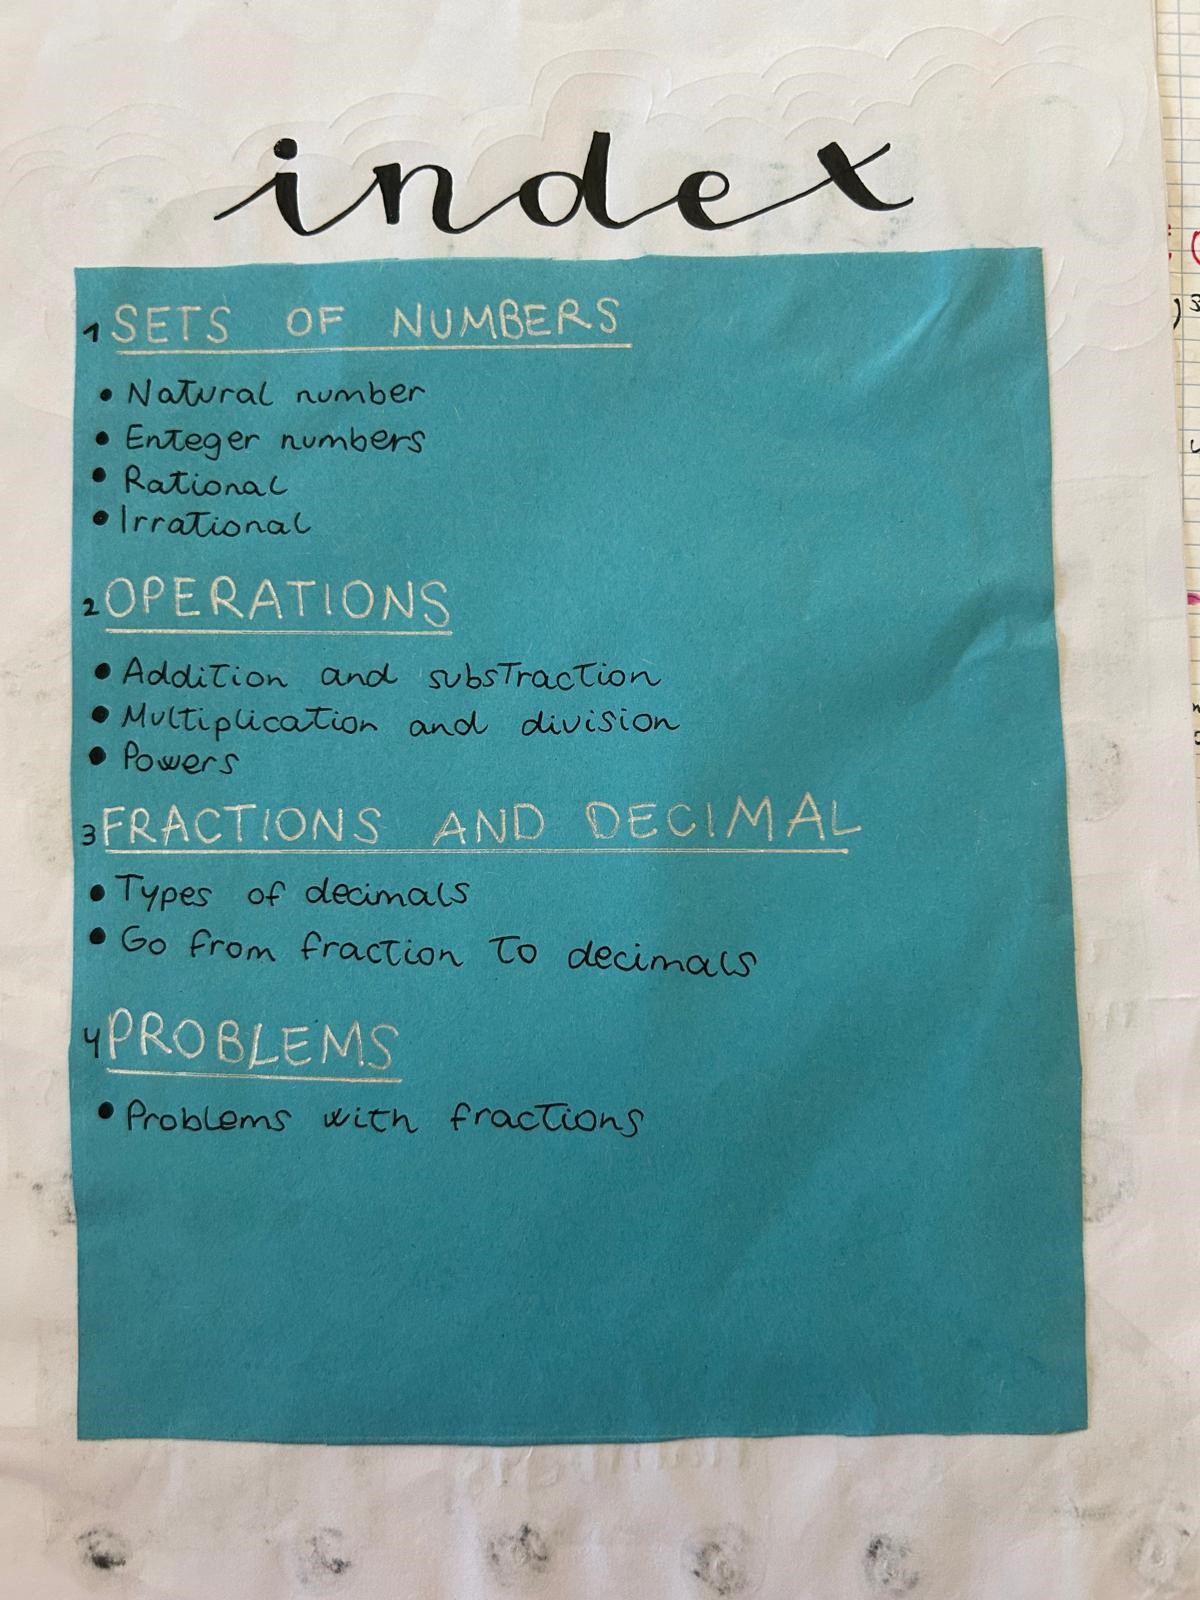 index
1 SETS OF NUMBERS
• Natural number
• Enteger numbers
• Rational
• Irrational
2 OPERATIONS
• Addition and substraction
• Multiplication and division
• Powers
3 FRACTIONS AND DECIMAL
• Types of decimals
• Go from fraction to decimals
4 PROBLEMS
• Problems with fractions